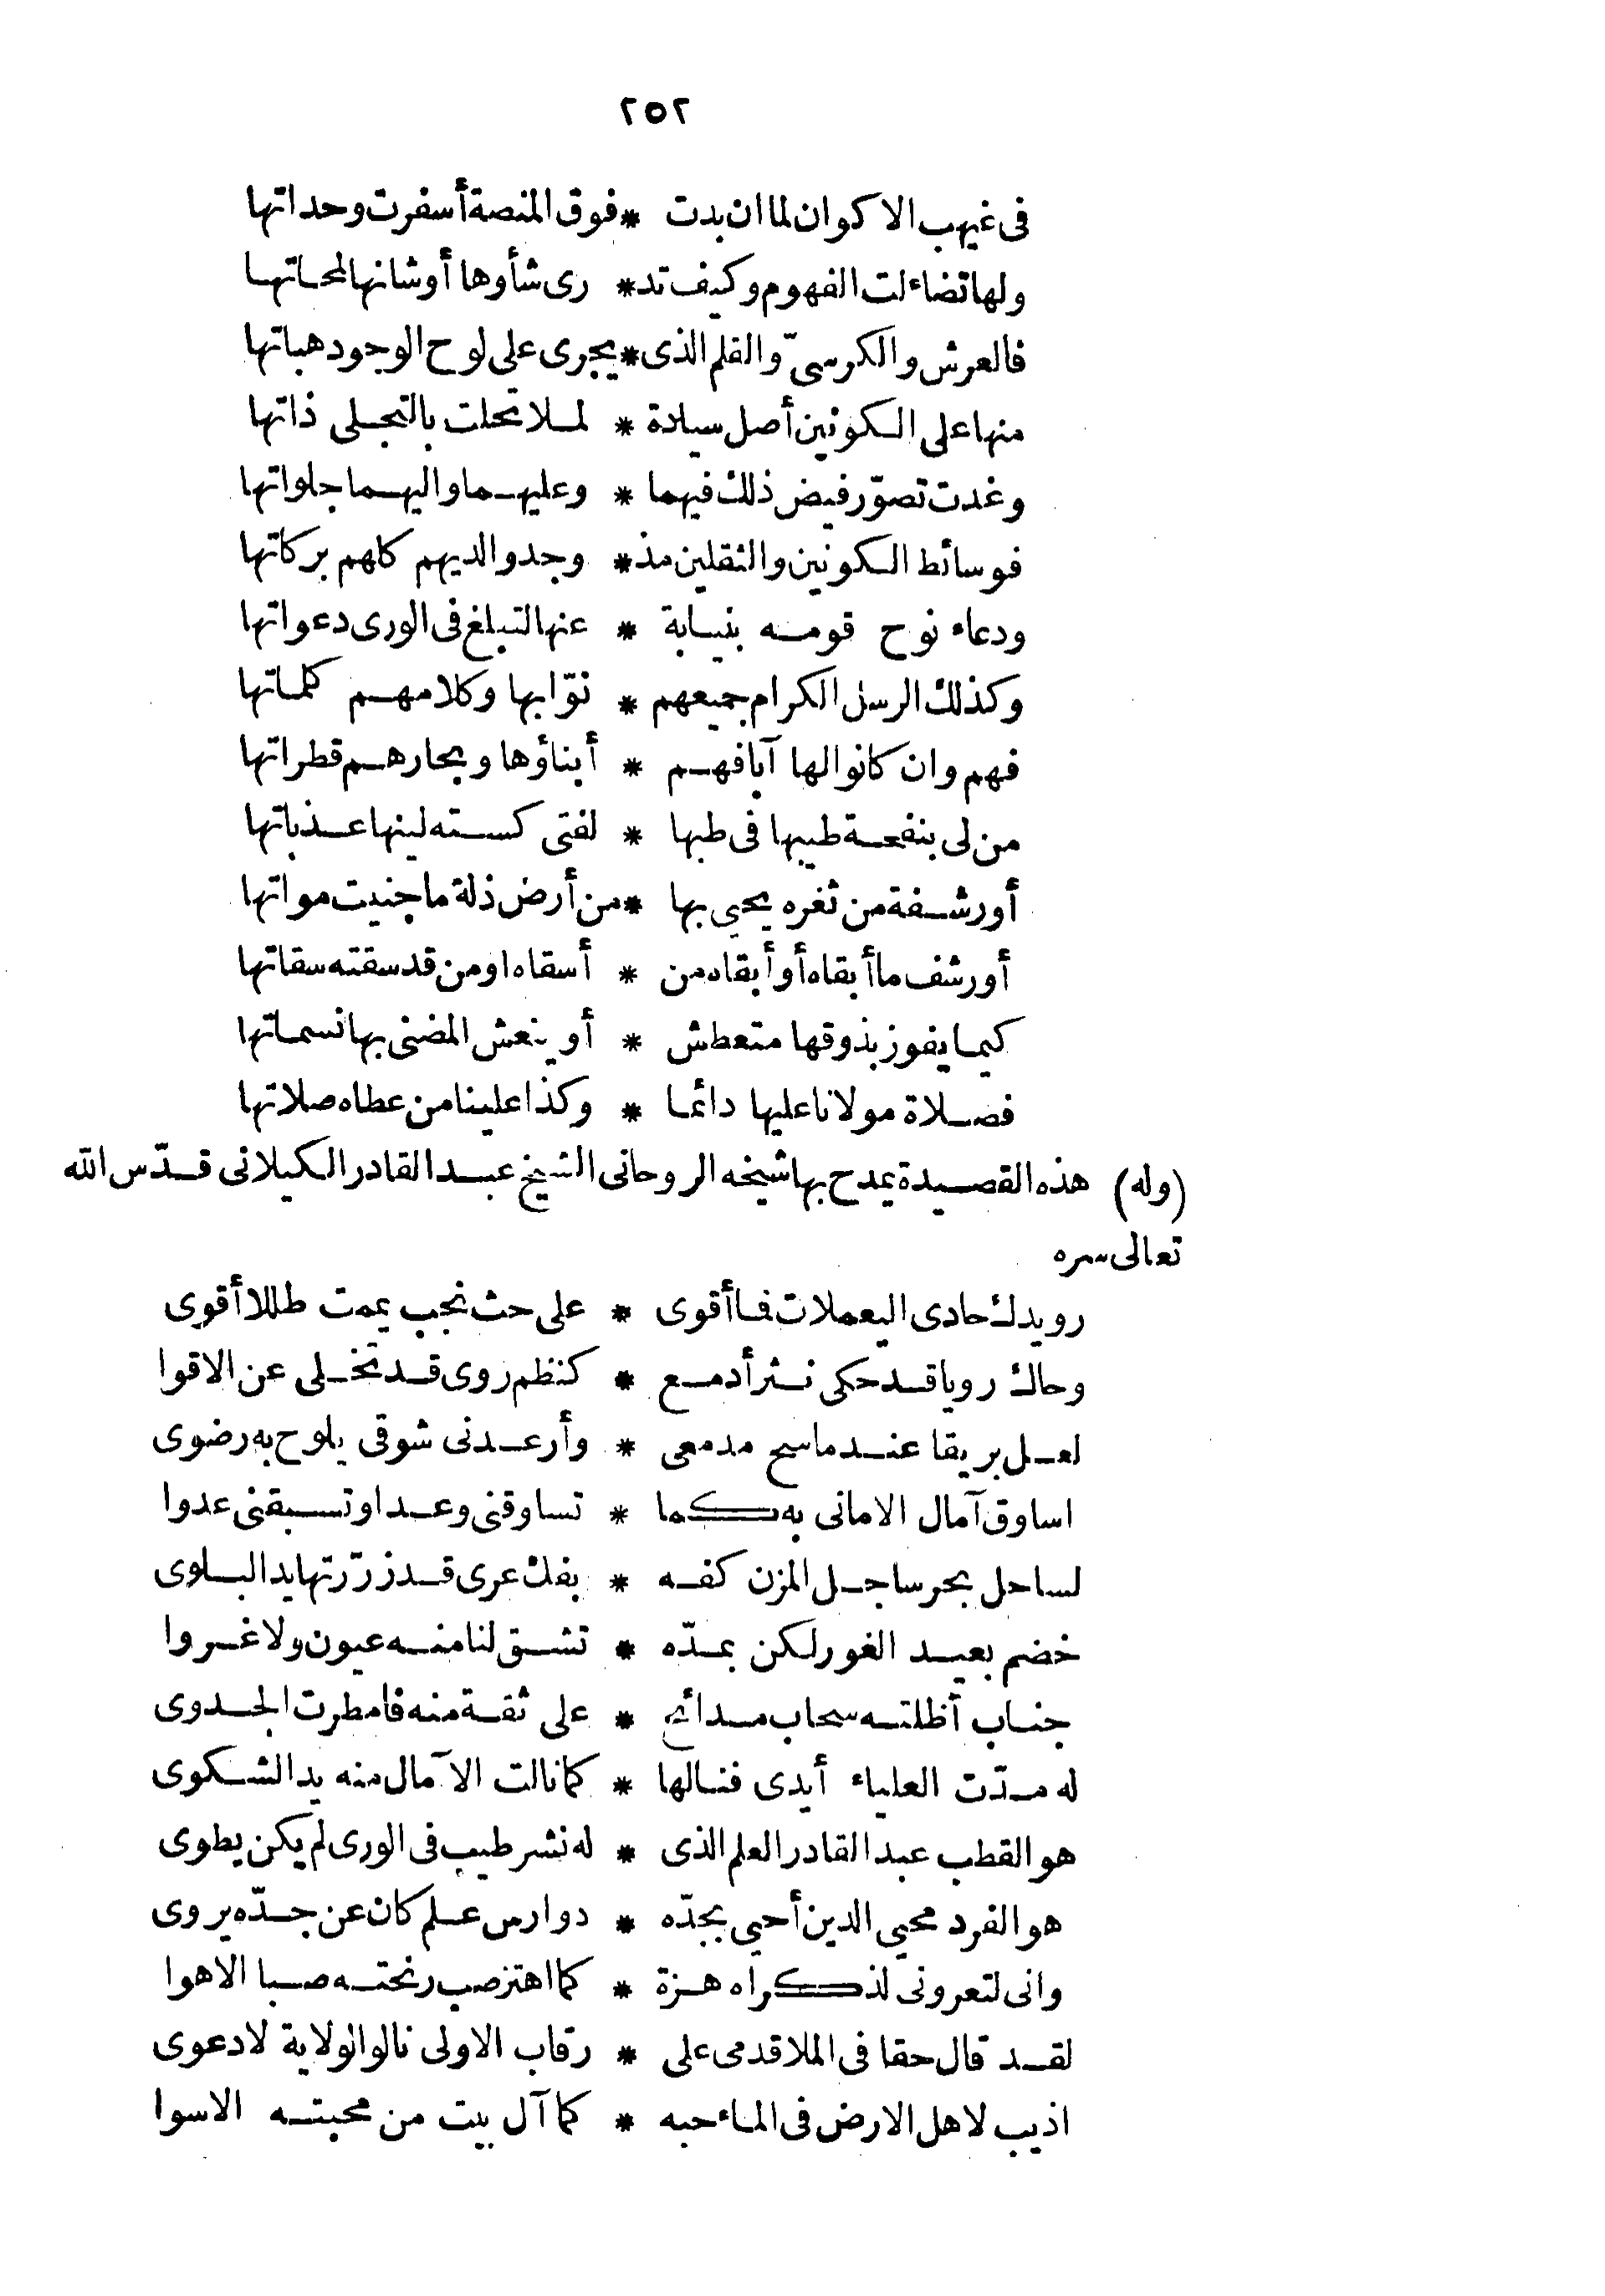 ٢٥٢
فى غيهب الاكوان لما ان بدت * فوق المنصة أسفرت وحداتها
ولها تضاءلت الفهوم وكيف تد * رى شأوها أوشانها لمحاتها
فالعرش والكرسىّ والقلم الذى * يجرى على لوح الوجود هباتها
منها على الكونين أصل سيادة * لملا تحلت بالتجلى ذاتها
وغدت تصوّر فيض ذلك فيهما * وعليهما واليهما جلواتها
فوسائط الكونين والثقلين مذ * وجدوا لديهم كلهم بركاتها
ودعاء نوح قومه بنيابة * عنها لتبلغ فى الورى دعواتها
وكذلك الرسل الكرام جميعهم * نوّابها وكلامهم كلماتها
فهم وان كانوا لها آبا فهم * أبناؤها وبحارهم قطراتها
من لى بنفحة طيبها فى طبها * لفتى كسته لينها عذباتها
أو رشفة من ثغره يحيى بها * من أرض ذلة ما جنيت مواتها
أو رشف ما أبقاه أو أبقاه من * أسقاه او من قد سقته سقاتها
كيما يفوز بذوقها متعطش * أو ينعش المضنى بها نسماتها
فصلاة مولانا عليها دائما * وكذا علينا من عطاه صلاتها
(وله) هذه القصيدة يمدح بها شيخه الروحانى الشيخ عبد القادر الكيلانى قدّس الله
تعالى سره
رويدك حادى اليعملات فما أقوى * على حث نجب يممت طللا أقوى
وحاك رويا قد حكى نثر أدمع * كنظم روى قد تخلى عن الاقوا
لعل بريقا عند ما سح مدمعى * وأرعدنى شوقى يلوح به رضوى
اساوق آمال الامانى به كما * تساوقنى وعدا وتسبقنى عدوا
لساحل بحر ساجل المزن كفه * بفك عرى قد زرّرتها يد البلوى
خضم بعيد الغور لكن بمدّه * تشق لنا منه عيون ولا غروا
جناب أظلته سحاب مدائح * على ثقة منه فامطرت الجدوى
له مدّت العلياء أيدى فنالها * كما نالت الآمال منه يد الشكوى
هو القطب عبد القادر العلم الذى * له نشر طيب فى الورى لم يكن يطوى
هو الفرد محيى الدين أحيى بجدّه * دوارس علم كان عن جدّه يروى
وانى لتعرونى لذكراه هزة * كما اهتز صب رنحته صبا الاهوا
لقد قال حقا فى الملا قدمى على * رقاب الاولى نالوا الولاية لا دعوى
اذيب لاهل الارض فى الماء حبه * كما آل بيت من محبته الاسوا